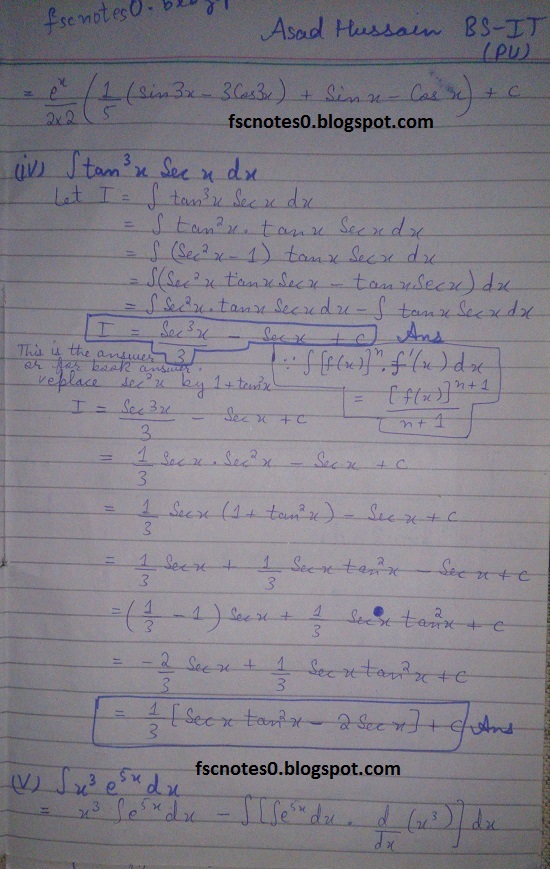 fscnotes0.blog
Asad Hussain BS-IT
(PU)
= e^x/2x2 (1/5 (sin3x - 3Cos3x) + Sin x - Cos x) + c
fscnotes0.blogspot.com
(iv) ∫tan³x Sec x dx
Let I = ∫ tan³x Sec x dx
= ∫ tan²x. tanx Secx dx
= ∫ (Sec²x-1) tanx Secx dx
= ∫(Sec²x tanx Secx - tanx Secx) dx
= ∫ Sec²x. tanx Secx dx - ∫ tanx Secx dx
I = Sec³x/3 - Sec x + c Ans
This is the answer
or for book answer.
replace sec²x by 1+tan²x
∵ ∫[f(x)]^n. f'(x) dx
= [f(x)]^{n+1}/n+1
I = Sec³x/3 - Secx + c
= 1/3 Secx . Sec²x - Secx + c
= 1/3 Secx (1+ tan²x) - Secx + c
= 1/3 Secx + 1/3 Secx tan²x - Secx + c
= (1/3 - 1) Secx + 1/3 Secx tan²x + c
= -2/3 Secx + 1/3 Secx tan²x + c
= 1/3 [Secx tan²x - 2Secx] + c Ans
fscnotes0.blogspot.com
(V) ∫x³ e^{5x} dx
= x³ ∫e^{5x} dx - ∫[∫e^{5x} dx . d/dx (x³)] dx